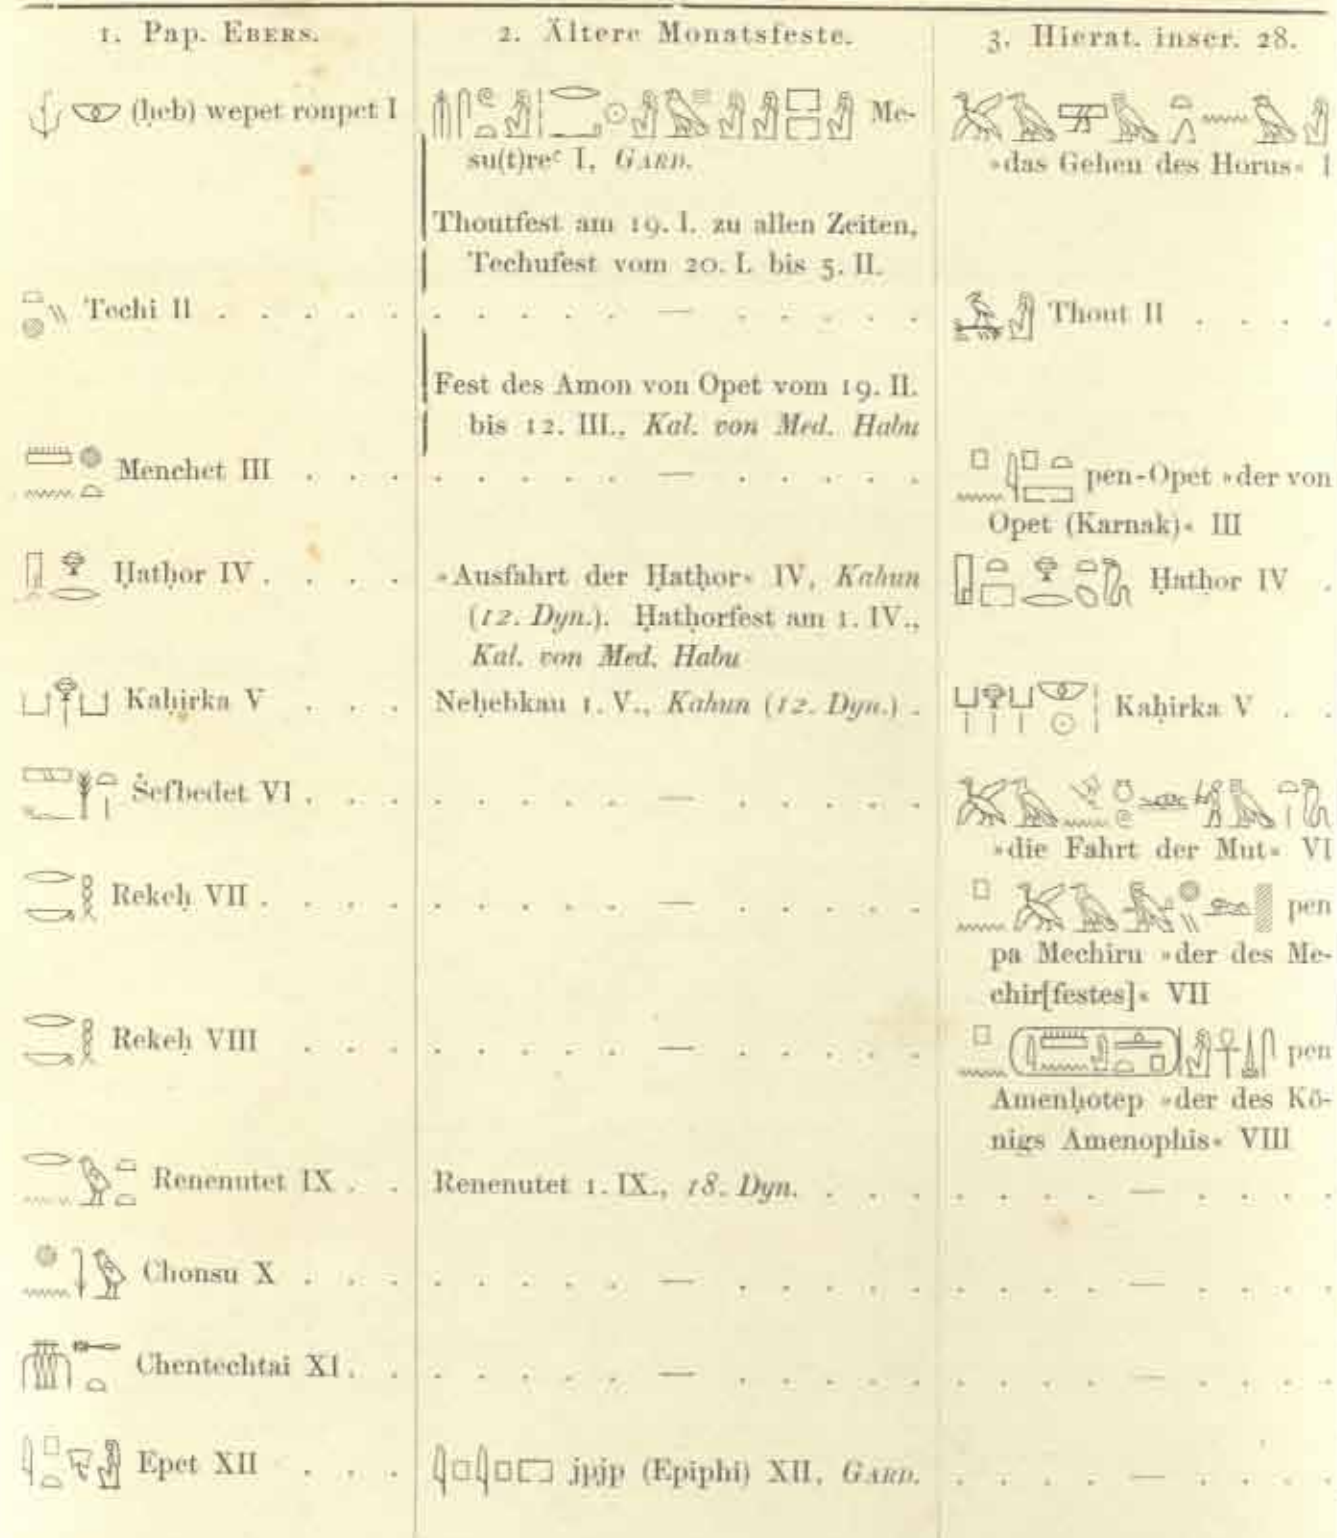 1. Pap. Ebers.
2. Ältere Monatsfeste.
3. Hierat. inscr. 28.
(ḥeb) wepet ronpet I
Me-
su(t)reꜥ I, Gard.
»das Gehen des Horus« I
Thoutfest am 19. I. zu allen Zeiten,
Techufest vom 20. I. bis 5. II.
Techi II . . . . .
. . . . . — . . . . .
Thout II . . . .
Fest des Amon von Opet vom 19. II.
bis 12. III., Kal. von Med. Habu
Menchet III . . .
. . . . . — . . . . .
pen-Opet »der von
Opet (Karnak)« III
Ḥatḥor IV . . . .
»Ausfahrt der Ḥatḥor« IV, Kahun
(12. Dyn.). Ḥatḥorfest am 1. IV.,
Kal. von Med. Habu
Ḥatḥor IV .
Kaḥirka V . . .
Neḥebkau 1. V., Kahun (12. Dyn.) .
Kaḥirka V . .
Šefbedet VI . . .
. . . . . — . . . . .
»die Fahrt der Mut« VI
Rekeḥ VII . . . .
. . . . . — . . . . .
pen
pa Mechiru »der des Me-
chir[festes]« VII
Rekeḥ VIII . . .
. . . . . — . . . . .
pen
Amenḥotep »der des Kö-
nigs Amenophis« VIII
Renenutet IX . .
Renenutet 1. IX., 18. Dyn. . . . .
. . . . — . . . .
Chonsu X . . . .
. . . . . — . . . . .
. . . . — . . . .
Chentechtai XI . .
. . . . . — . . . . .
. . . . — . . . .
Epet XII . . .
jpjp (Epiphi) XII, Gard.
. . . . — . . . .